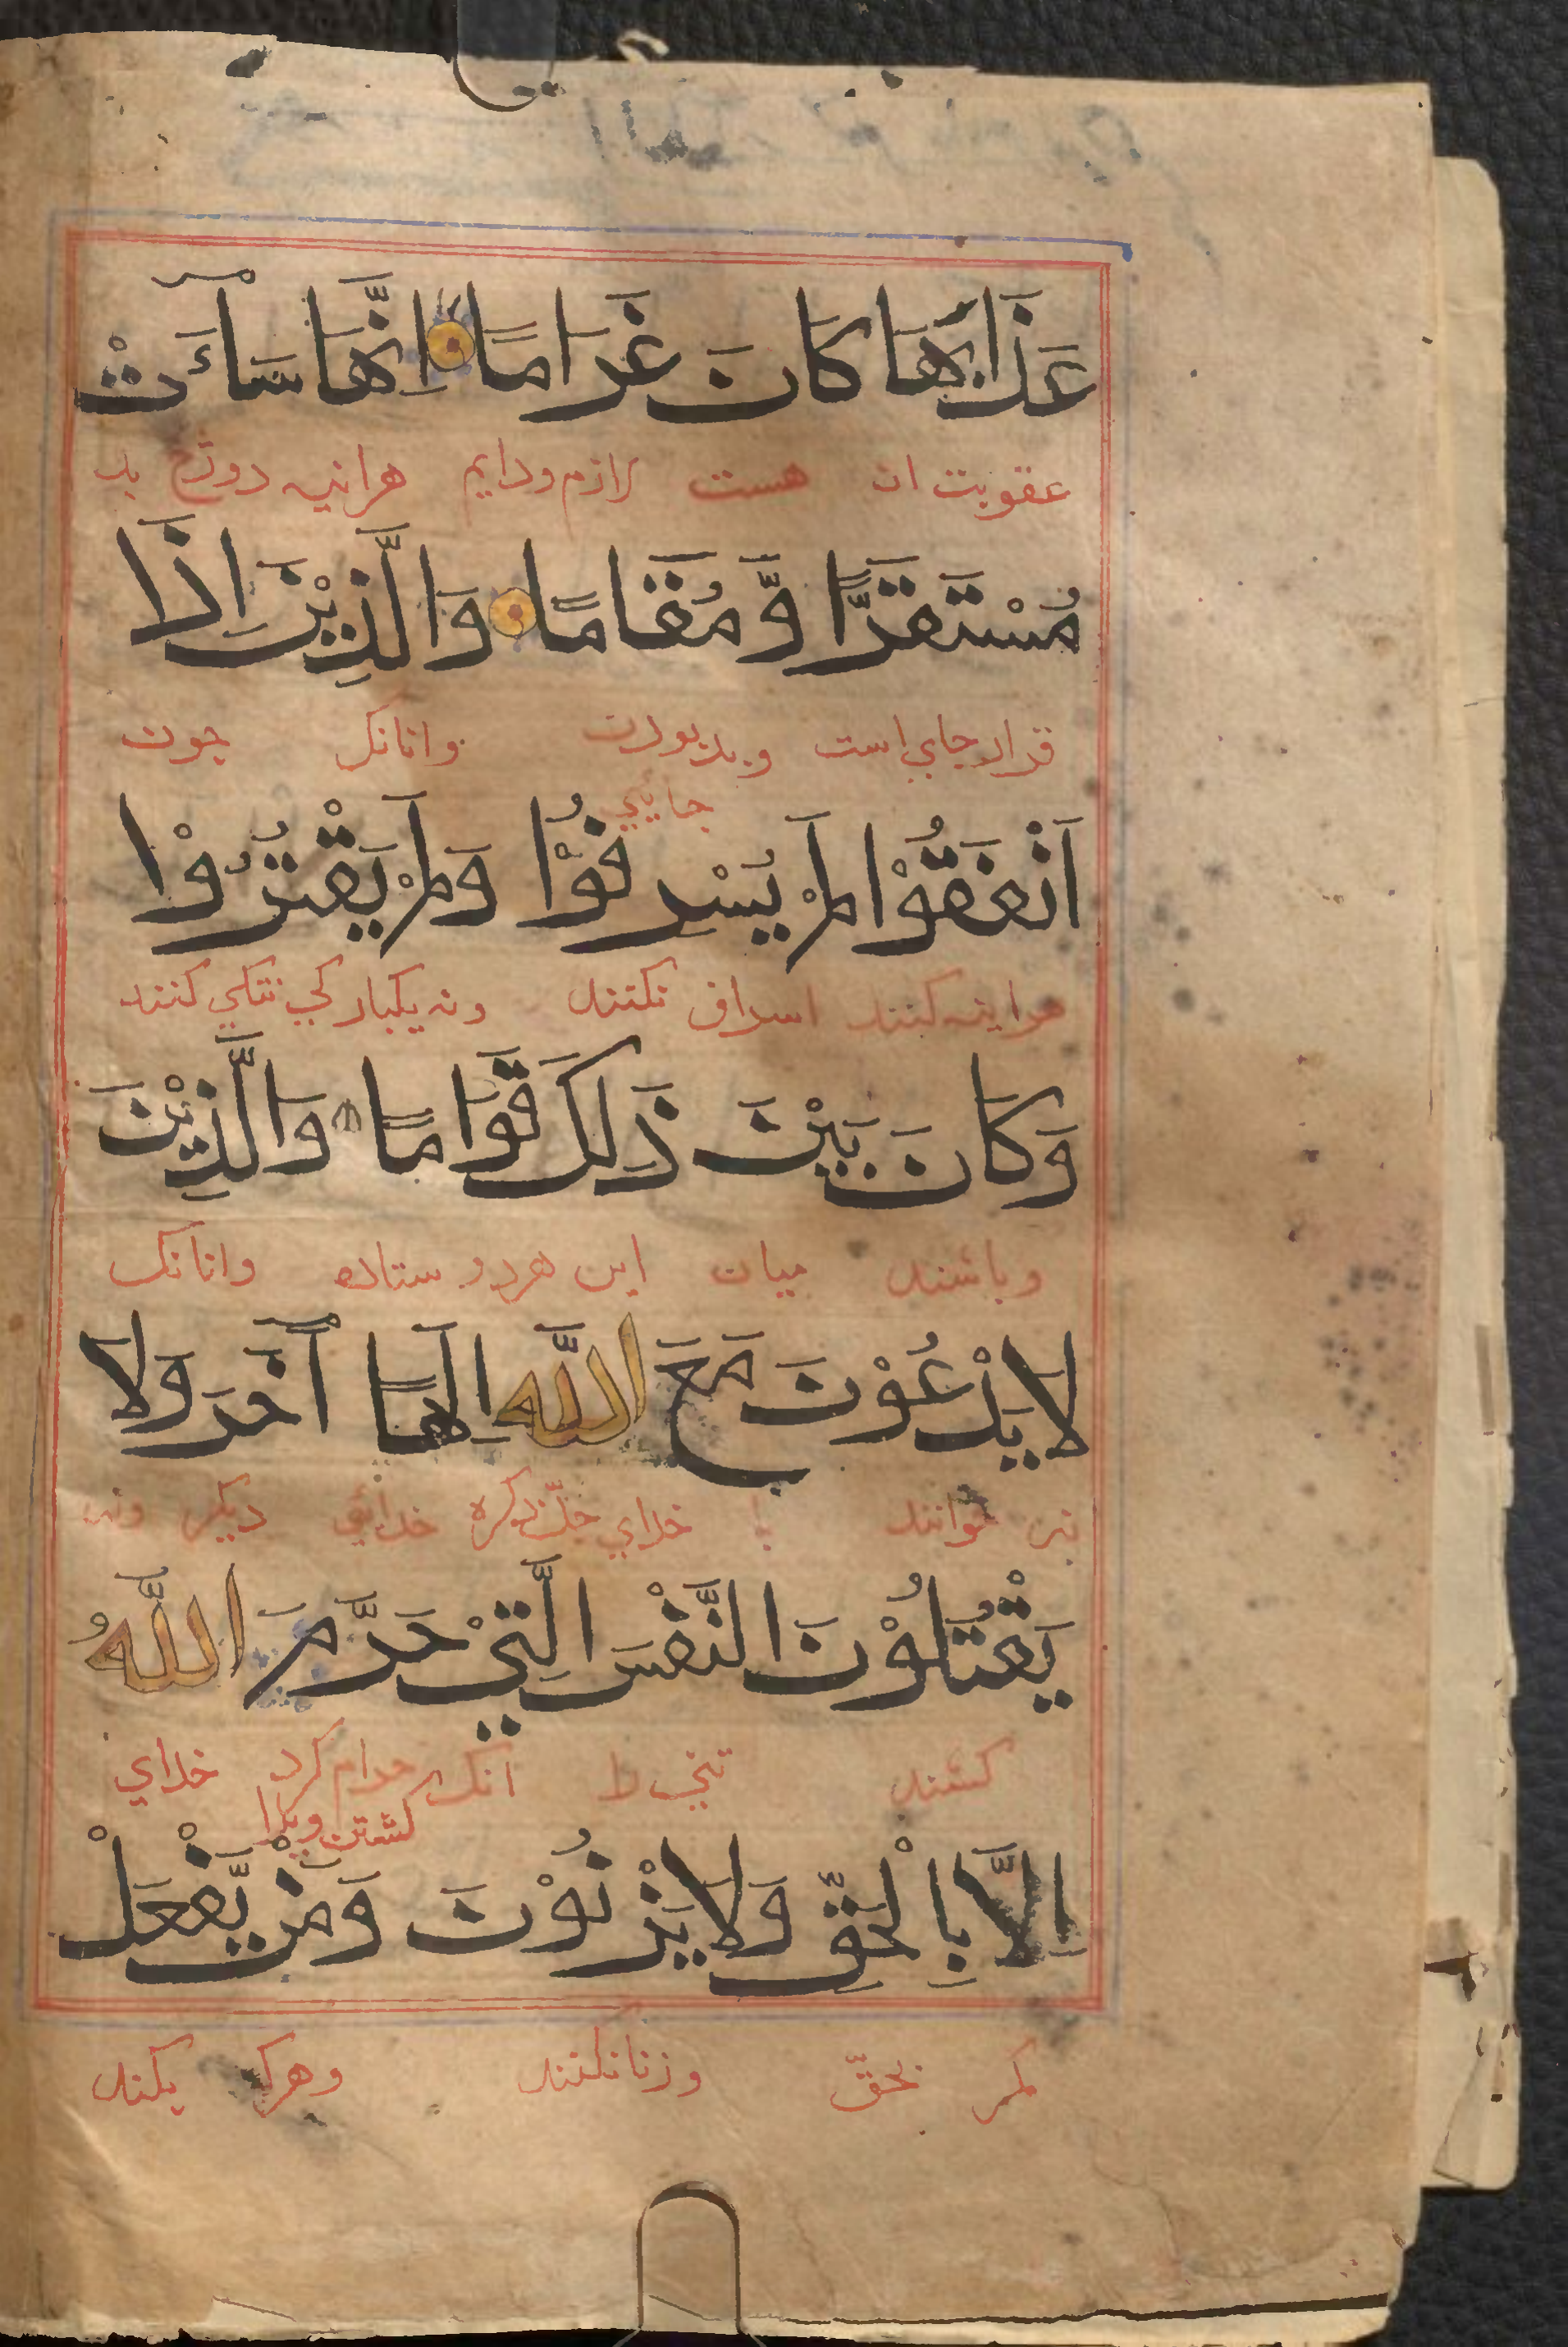 عَذَابَهَا كَانَ غَرَامًا اِنَّهَا سَآءَتْ
عقوبت ان هست لازم ودايم هراينه دوزخ بد
مُسْتَقَرًّا وَّ مُقَامًا وَالَّذِيْنَ اِذَا
قرار جاي است وبد بودن وانانک جون
جايي
اَنْفَقُوْا لَمْ يُسْرِفُوْا وَلَمْ يَقْتُرُوْا
هراينه کنند اسراف نکنند ونه يکبارکي تنکي کنند
وَكَانَ بَيْنَ ذَلِكَ قَوَامًا وَالَّذِيْنَ
وباشند ميان اين هردو ستاده وانانک
لَا يَدْعُوْنَ مَعَ اللّٰهِ اِلَهًا آخَرَ وَلَا
نخوانند با خداي جلّ ذکره خدائي ديکر ونه
يَقْتُلُوْنَ النَّفْسَ الَّتِيْ حَرَّمَ اللّٰهُ
کشند تني را انک حرام کرد خداي
کشتن ويرا
اِلَّا بِالْحَقِّ وَلَا يَزْنُوْنَ وَمَنْ يَّفْعَلْ
مکر بحقّ وزنا نکنند وهرک بکند